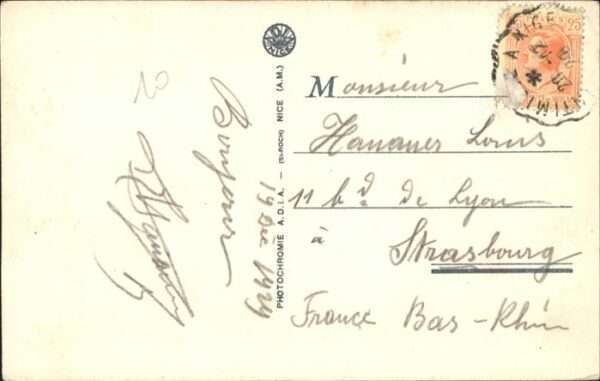 10
Bonjour
19 Déc 1929
PHOTOCHROMIE A.D.I.A. — (St-ROCH) NICE (A.M.)
Monsieur
Hanauer Louis
11 bd. de Lyon
à
Strasbourg
France Bas-Rhin
A NICE
20
TIMI